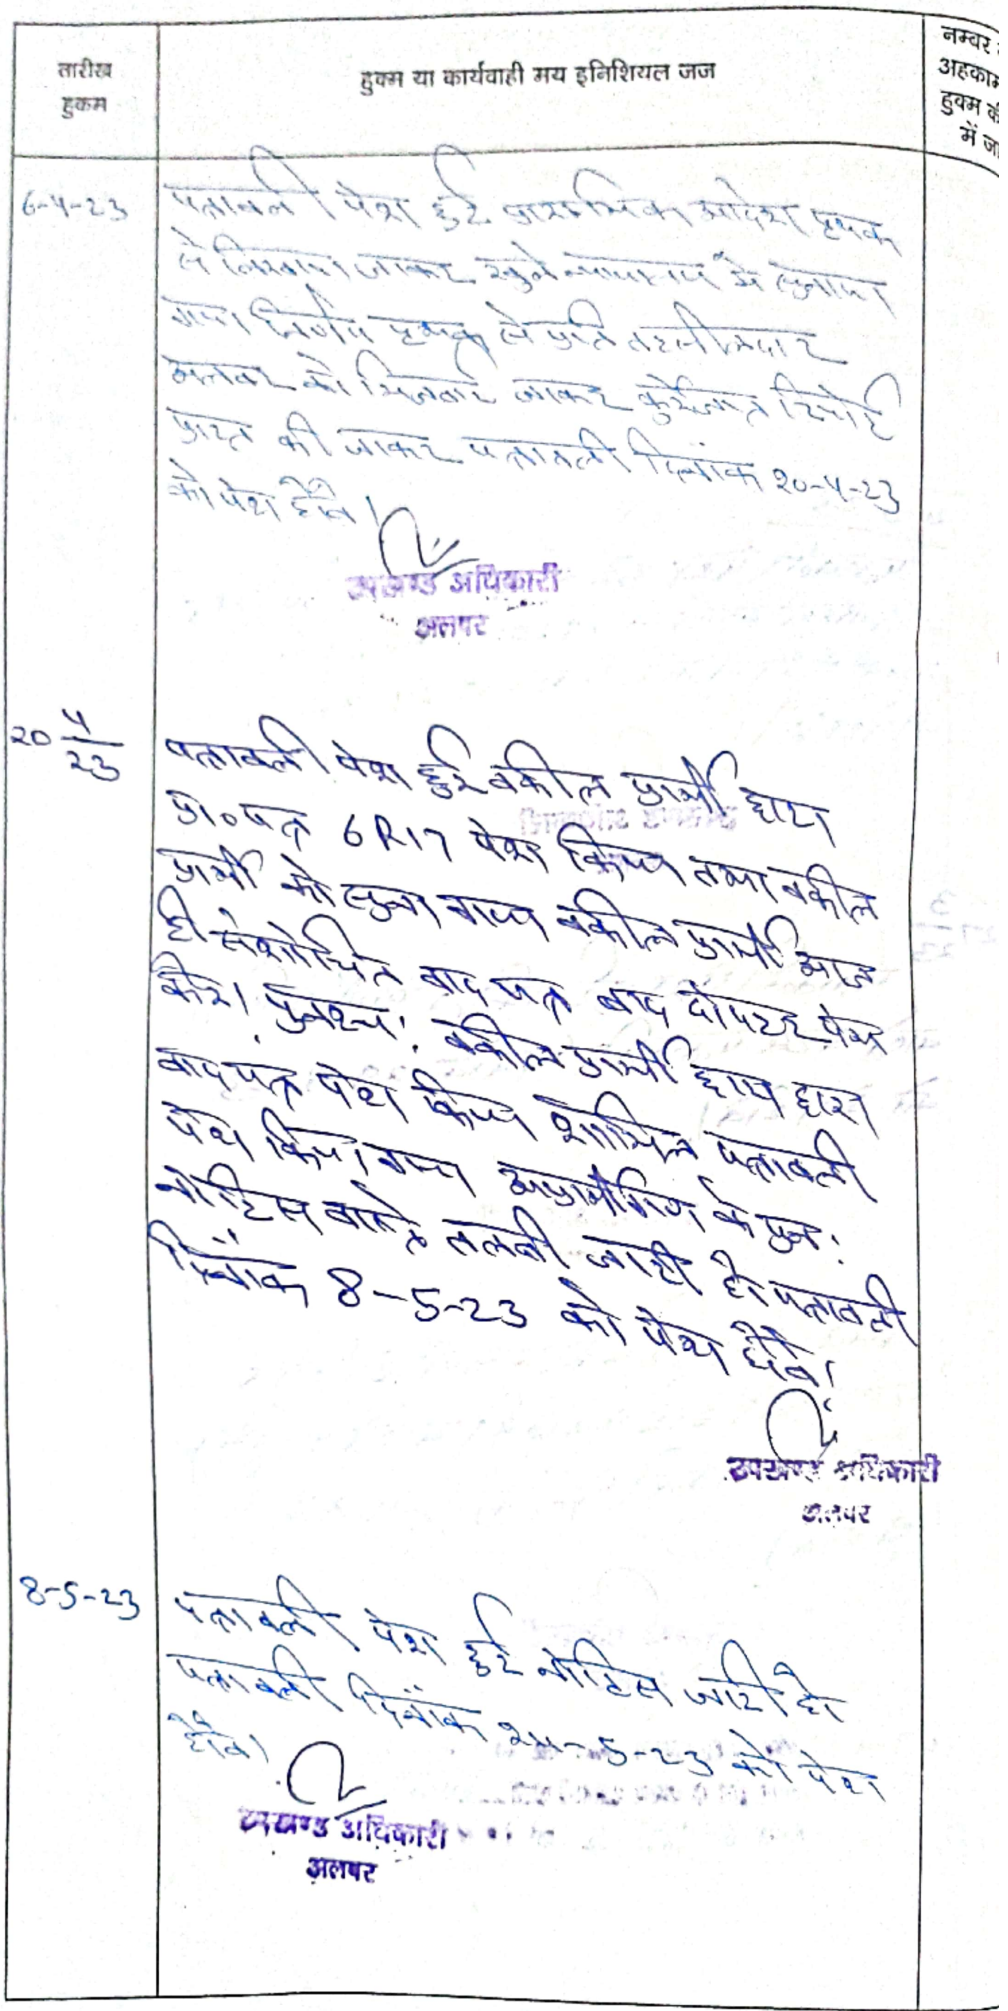 तारीख
हुकम
हुक्म या कार्यवाही मय इनिशियल जज
नम्बर
अहकाम
हुक्म की
में जा
6-4-23
पत्रावली पेश हुई प्रारम्भिक आदेश पृथक
से लिखाया जाकर खुले न्यायालय में सुनाया
गया। निर्णय पृथक से प्रति तहसीलदार
अलवर को भिजवाई जाकर कुर्रेजात रिपोर्ट
प्राप्त की जाकर पत्रावली दिनांक 20-4-23
को पेश होवे।
उपखण्ड अधिकारी
अलवर
20 4/23
पत्रावली पेश हुई वकील प्रार्थी द्वारा
प्रा०पत्र 6R17 पेश किया तथा वकील
प्रार्थी को सुना गया वकील प्रार्थी आज
ही संशोधित वाद पत्र बाद दोपहर पेश
करे। पुनश्च: वकील प्रार्थी द्वारा
वादपत्र पेश किया शामिल पत्रावली
पेश किया गया अप्रार्थीगण के पुन:
नोटिस वास्ते तलबी जारी हो पत्रावली
दिनांक 8-5-23 को पेश होवे।
उपखण्ड अधिकारी
अलवर
8-5-23
पत्रावली पेश हुई नोटिस जारी हो
पत्रावली दिनांक 24-5-23 को पेश
होवे।
उपखण्ड अधिकारी
अलवर